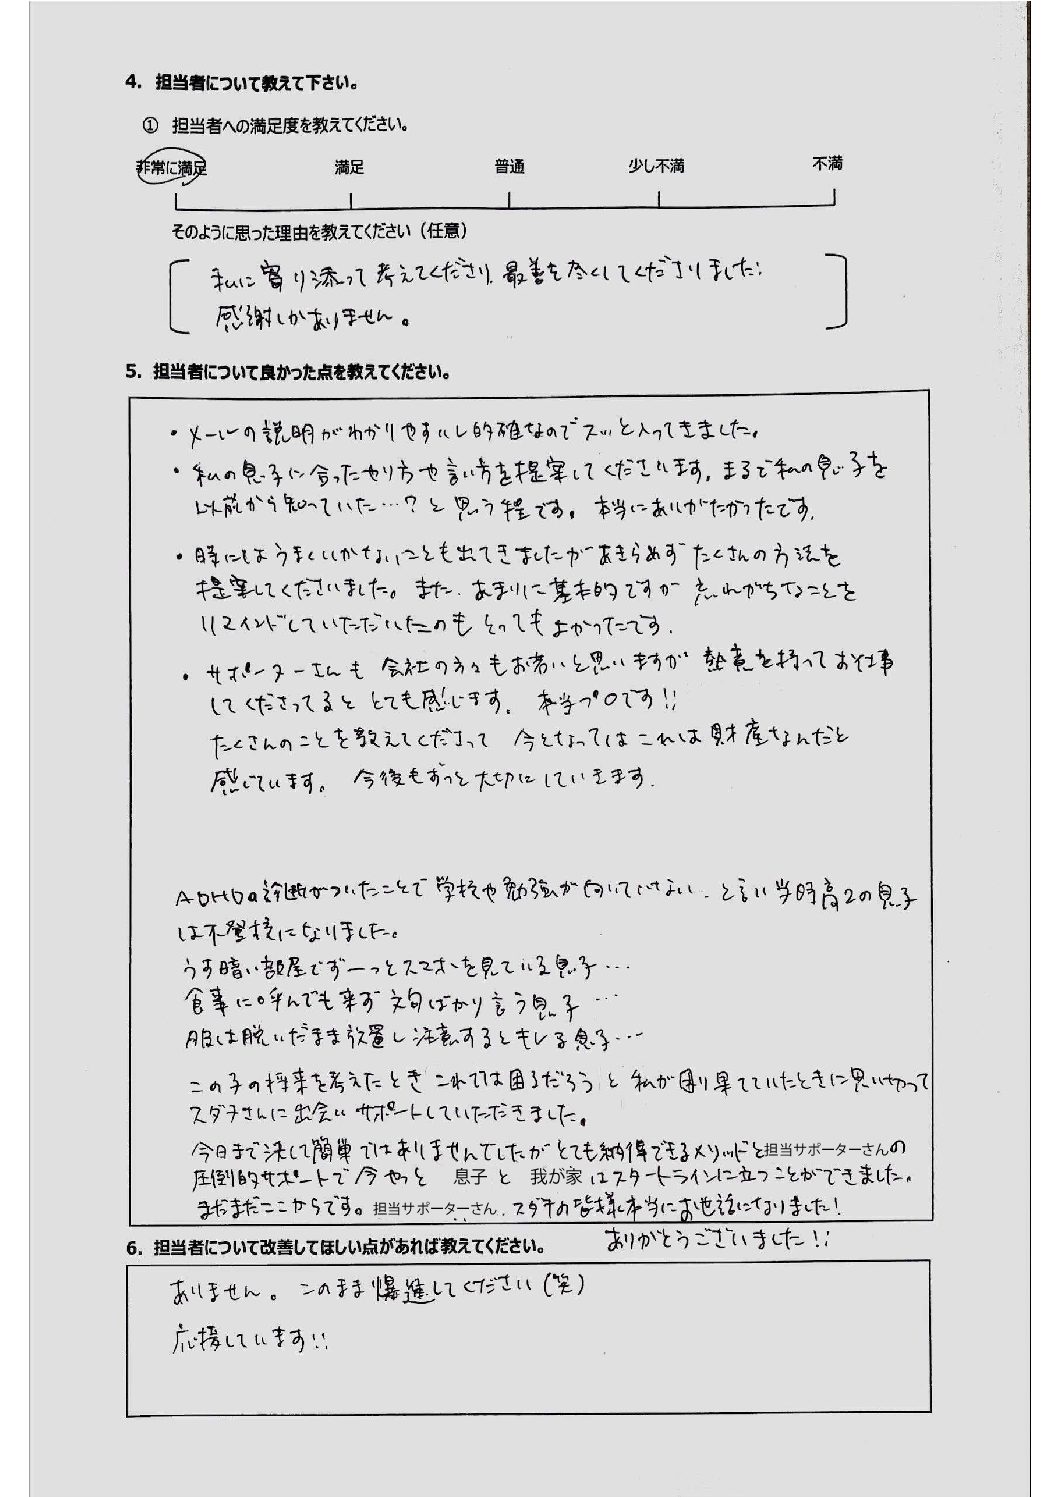 4. 担当者について教えて下さい。
① 担当者への満足度を教えてください。
非常に満足 満足 普通 少し不満 不満
そのように思った理由を教えてください（任意）
私に寄り添って考えてくださり、最善を尽くしてくださりました。
感謝しかありません。
5. 担当者について良かった点を教えてください。
・メールの説明がわかりやすいし的確なのでスッと入ってきました。
・私の息子に合ったやり方や言い方を提案してくださいます。まるで私の息子を
以前から知っていた…？と思う程です。本当にありがたかったです。
・時にはうまくいかないことも出てきましたがあきらめずたくさんの方法を
提案してくださいました。また、あまりに基本的ですが忘れがちなことを
リマインドしていただいたのもとってもよかったです。
・サポーターさんも会社の方々もお若いと思いますが熱意を持ってお仕事
してくださってるととても感じます。本当プロです!!
たくさんのことを教えてくださって今となってはこれは財産なんだと
感じています。今後もずっと大切にしていきます。
ADHDの診断がついたことで学校や勉強が向いていない、と言い当時高2の息子
は不登校になりました。
うす暗い部屋でずーっとスマホを見ている息子…
食事に呼んでも来ず文句ばかり言う息子…
服は脱いだまま放置し注意するとキレる息子…
この子の将来を考えたときこれでは困るだろうと私が困り果てていたときに思い切って
スダチさんに出会いサポートしていただきました。
今日まで決して簡単ではありませんでしたがとても納得できるメリッドと担当サポーターさんの
圧倒的サポートで今やっと 息子 と 我が家 はスタートラインに立つことができました。
まだまだここからです。担当サポーターさん、スダチの皆様本当にお世話になりました!
ありがとうございました!!
6. 担当者について改善してほしい点があれば教えてください。
ありません。このまま爆進してください(笑)
応援しています!!